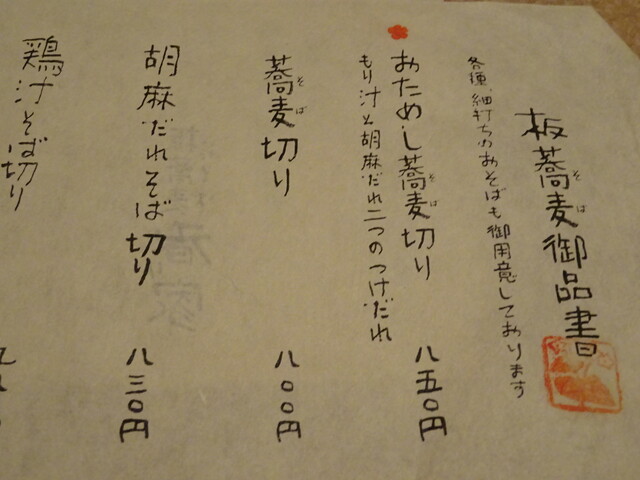 板蕎麦御品書
各種、細打ちのおそばも御用意しております
おためし蕎麦切り 八五〇円
もり汁と胡麻だれ二つのつけだれ
蕎麦切り 八〇〇円
胡麻だれそば切り 八三〇円
鶏汁そば切り